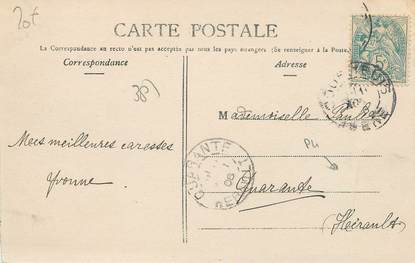 20t
CARTE POSTALE
(La Correspondance au recto n'est pas acceptée par tous les pays étrangers (Se renseigner à la Poste.)
Correspondance
Adresse
38)
Mademoiselle Paule
Mes meilleures caresses
Yvonne
QUARANTE
08
Quarante
Hérault
PU
5